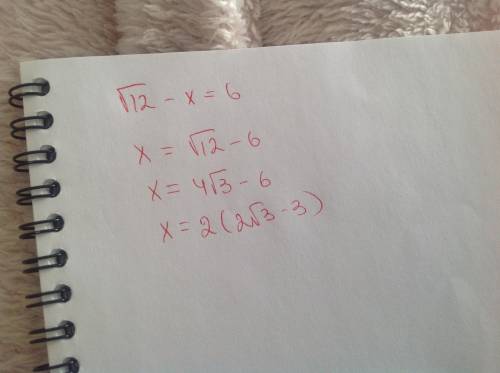 √12 - x = 6
x = √12 - 6
x = 4√3 - 6
x = 2(2√3 - 3)